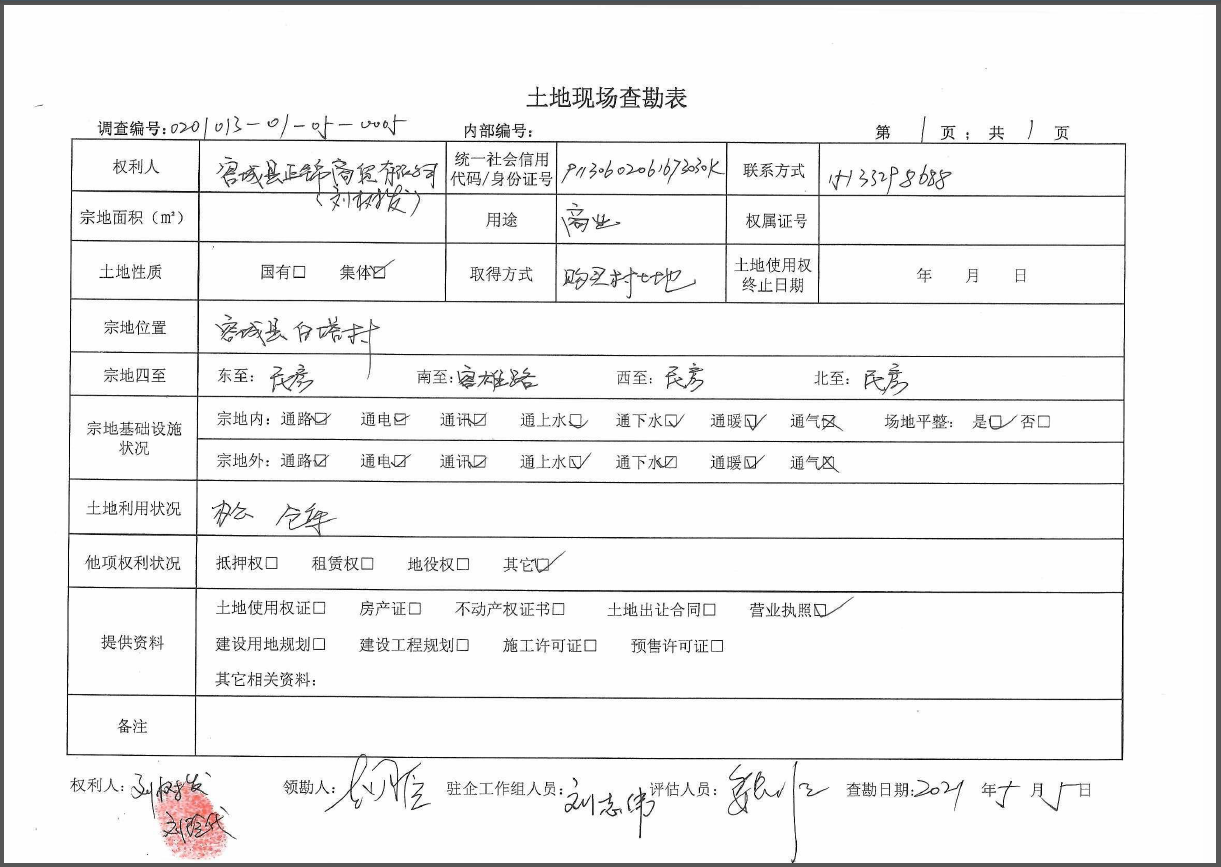 土地现场查勘表
调查编号:0201013-01-05-0005 内部编号: 第 1 页; 共 1 页
权利人 容城县正锦商贸有限公司 统一社会信用代码/身份证号 联系方式
(刘树发)
宗地面积（㎡） 用途 商业 权属证号
土地性质 国有□ 集体☑ 取得方式 购买村土地 土地使用权终止日期 年 月 日
宗地位置 容城县白塔村
宗地四至 东至: 民房 南至: 容雄路 西至: 民房 北至: 民房
宗地基础设施状况 宗地内: 通路☑ 通电☑ 通讯☑ 通上水☑ 通下水☑ 通暖☑ 通气☒ 场地平整: 是☑ 否□
宗地外: 通路☑ 通电☑ 通讯☑ 通上水☑ 通下水☑ 通暖☑ 通气☒
土地利用状况 办公 仓库
他项权利状况 抵押权□ 租赁权□ 地役权□ 其它☑
提供资料 土地使用权证□ 房产证□ 不动产权证书□ 土地出让合同□ 营业执照☑
建设用地规划□ 建设工程规划□ 施工许可证□ 预售许可证□
其它相关资料:
备注
权利人: 刘树发 领勘人: 驻企工作组人员: 刘志伟 评估人员: 查勘日期: 2021 年 5 月 5 日